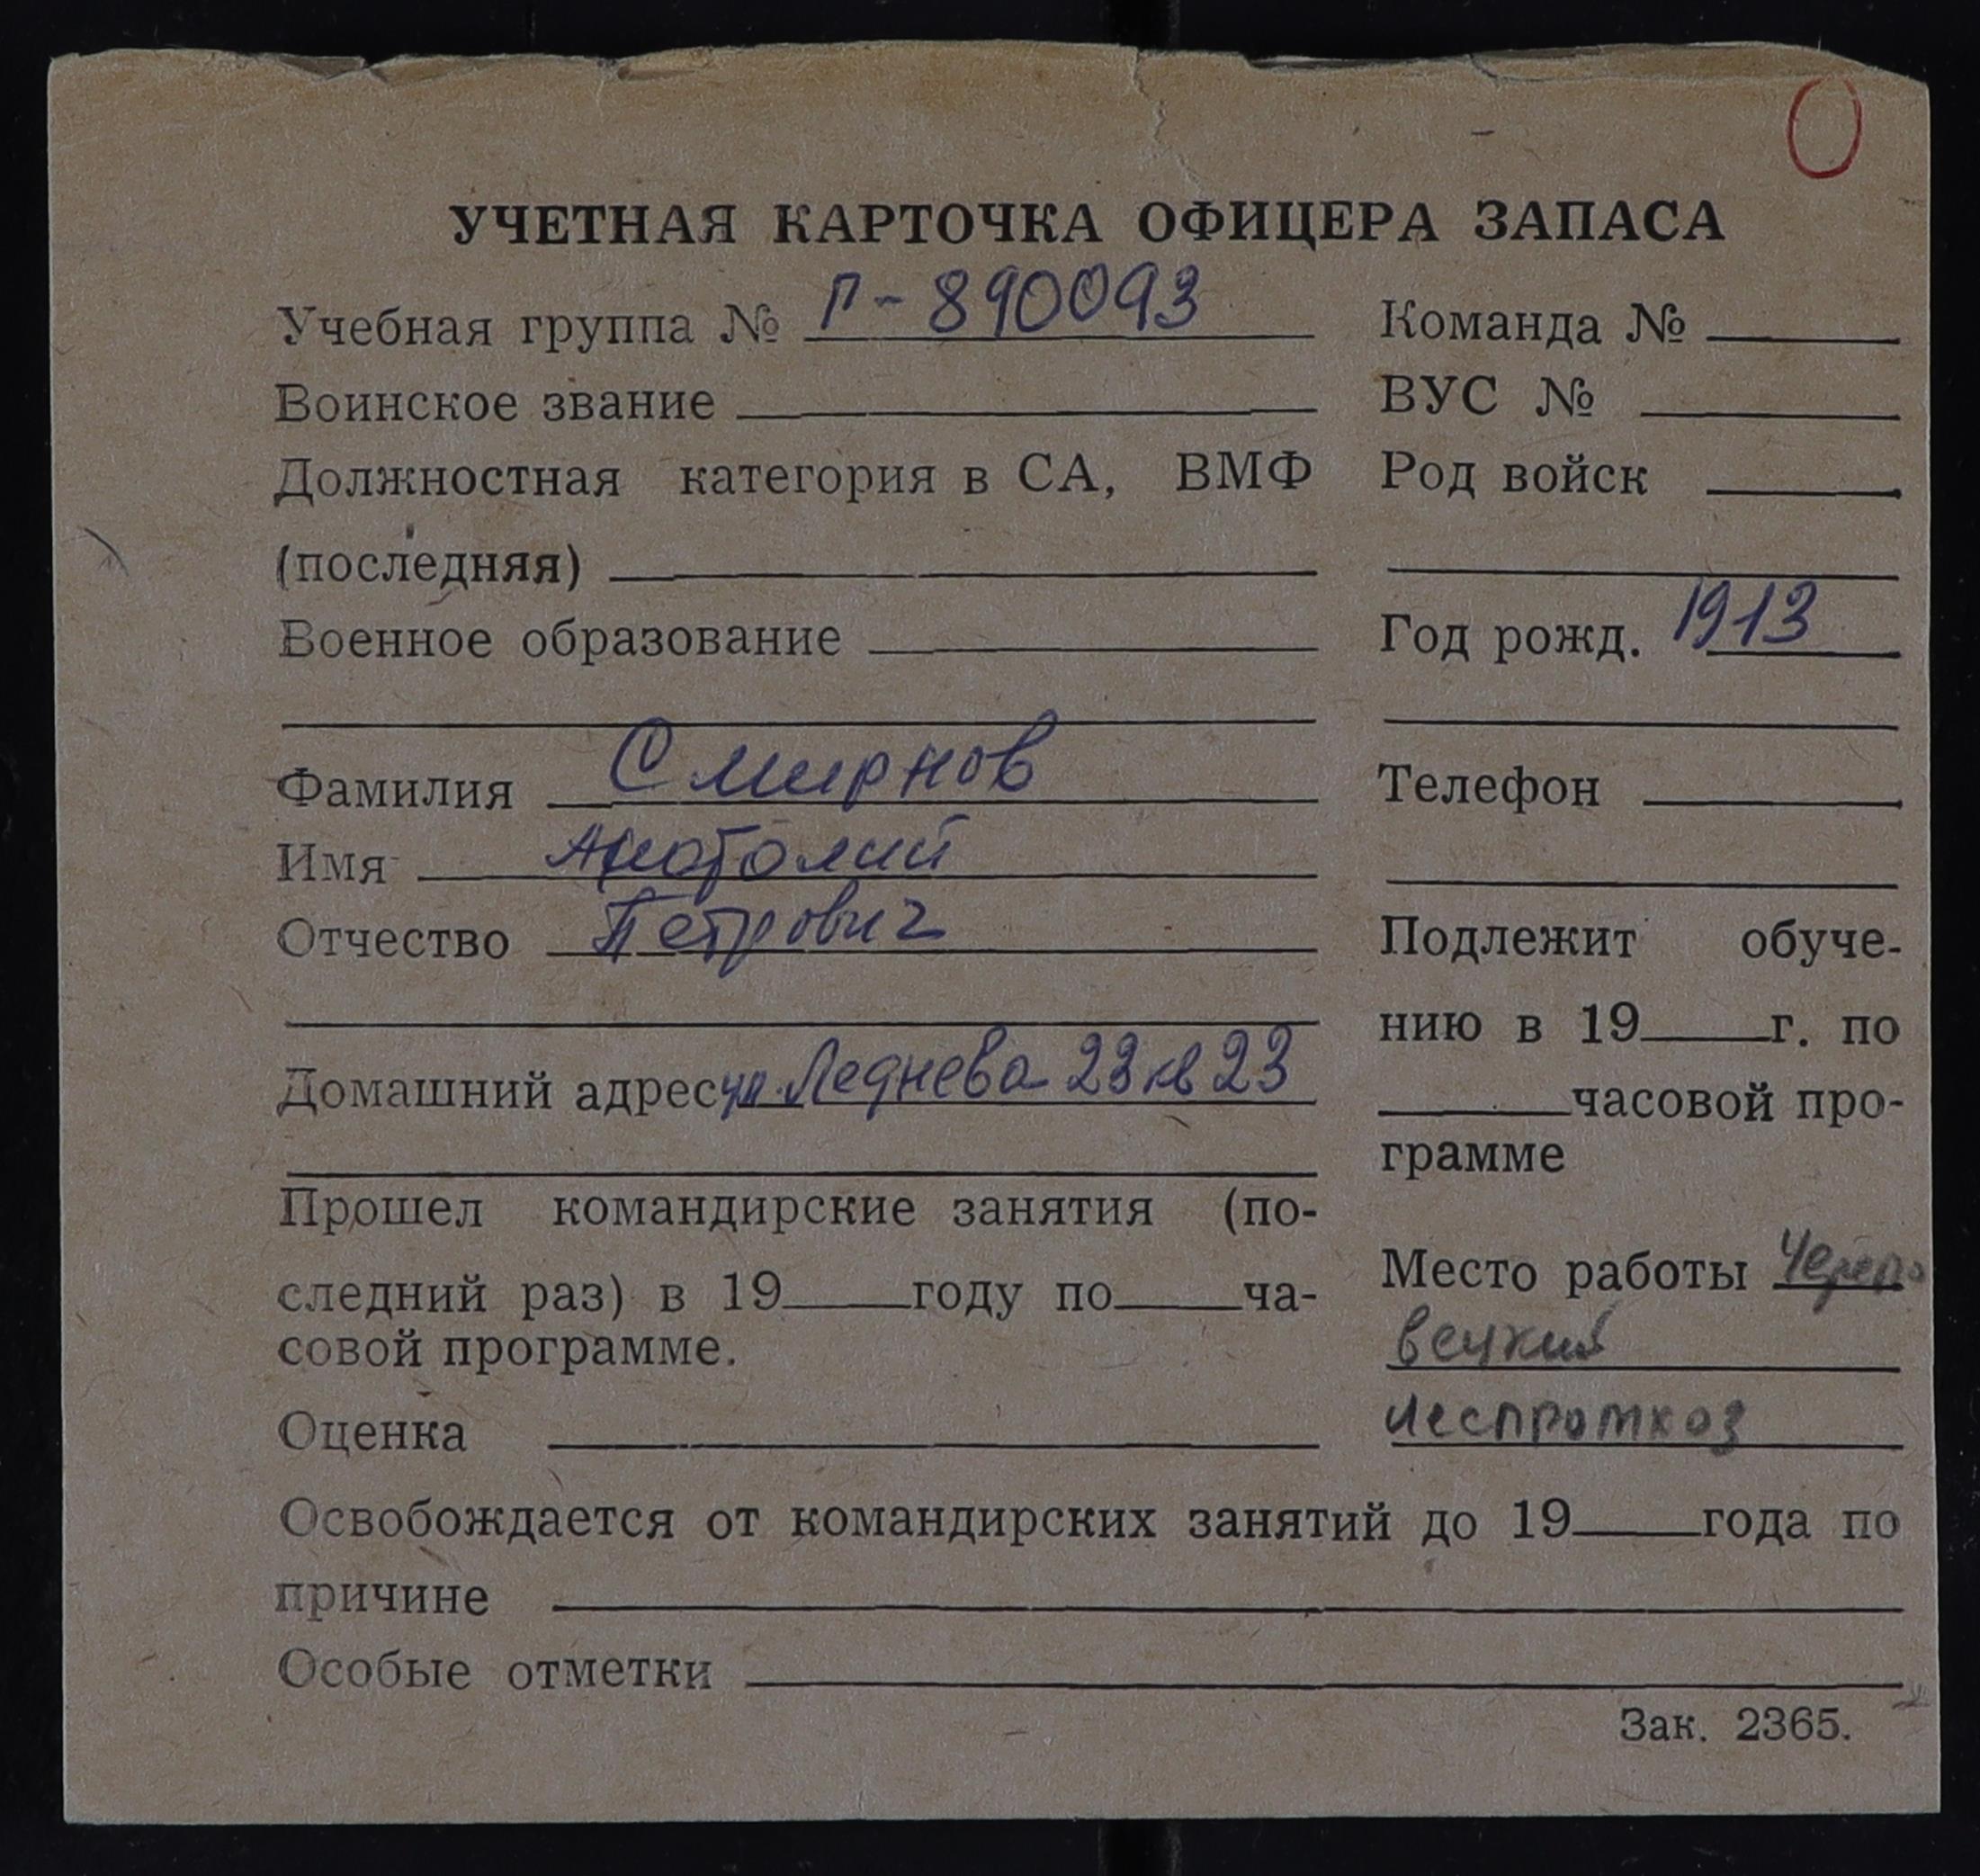 О
УЧЕТНАЯ КАРТОЧКА ОФИЦЕРА ЗАПАСА
Учебная группа № Г-890093
Воинское звание
Должностная категория в СА, ВМФ
(последняя)
Военное образование
Фамилия Смирнов
Имя Анатолий
Отчество Петрович
Домашний адрес ул. Леднева 23 кв 23
Прошел командирские занятия (по-
следний раз) в 19 году по ча-
совой программе.
Оценка
Команда №
ВУС №
Род войск
Год рожд. 1913
Телефон
Подлежит обуче-
нию в 19 г. по
часовой про-
грамме
Место работы Черепо
вецкий
леспромхоз
Освобождается от командирских занятий до 19 года по
причине
Особые отметки
Зак. 2365.